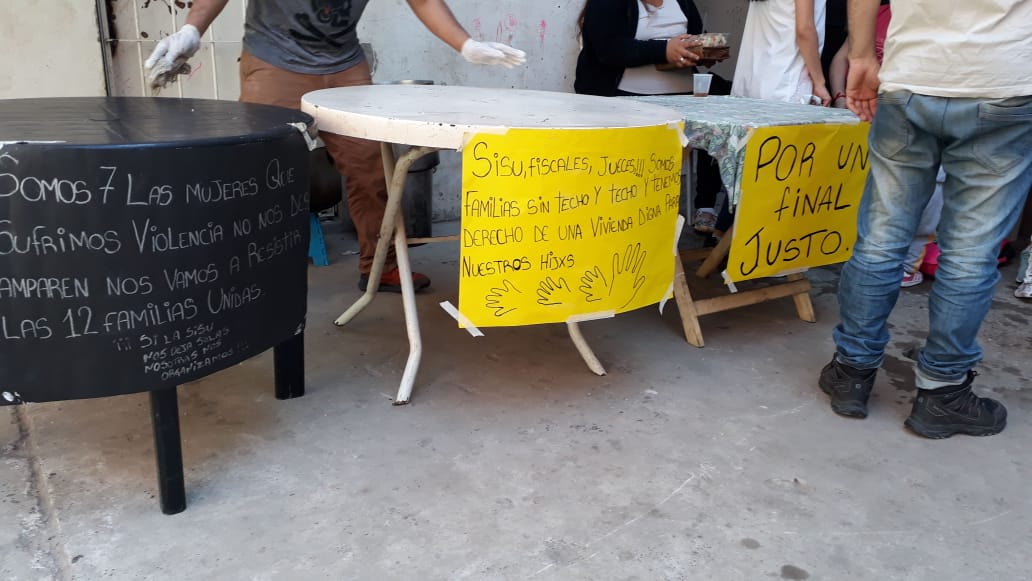 Somos 7 Las mujeres Que
Sufrimos Violencia no nos Des
amparen nos vamos a Resistir
Las 12 familias Unidas.
¡¡¡ Si La SISU
nos deja solas
nosotras nos
organizamos !!!
Sisu, fiscales, jueces!!! Somos
familias sin techo y techo y tenemos
derecho de una vivienda digna para
nuestros hijxs
Por un
final
Justo.